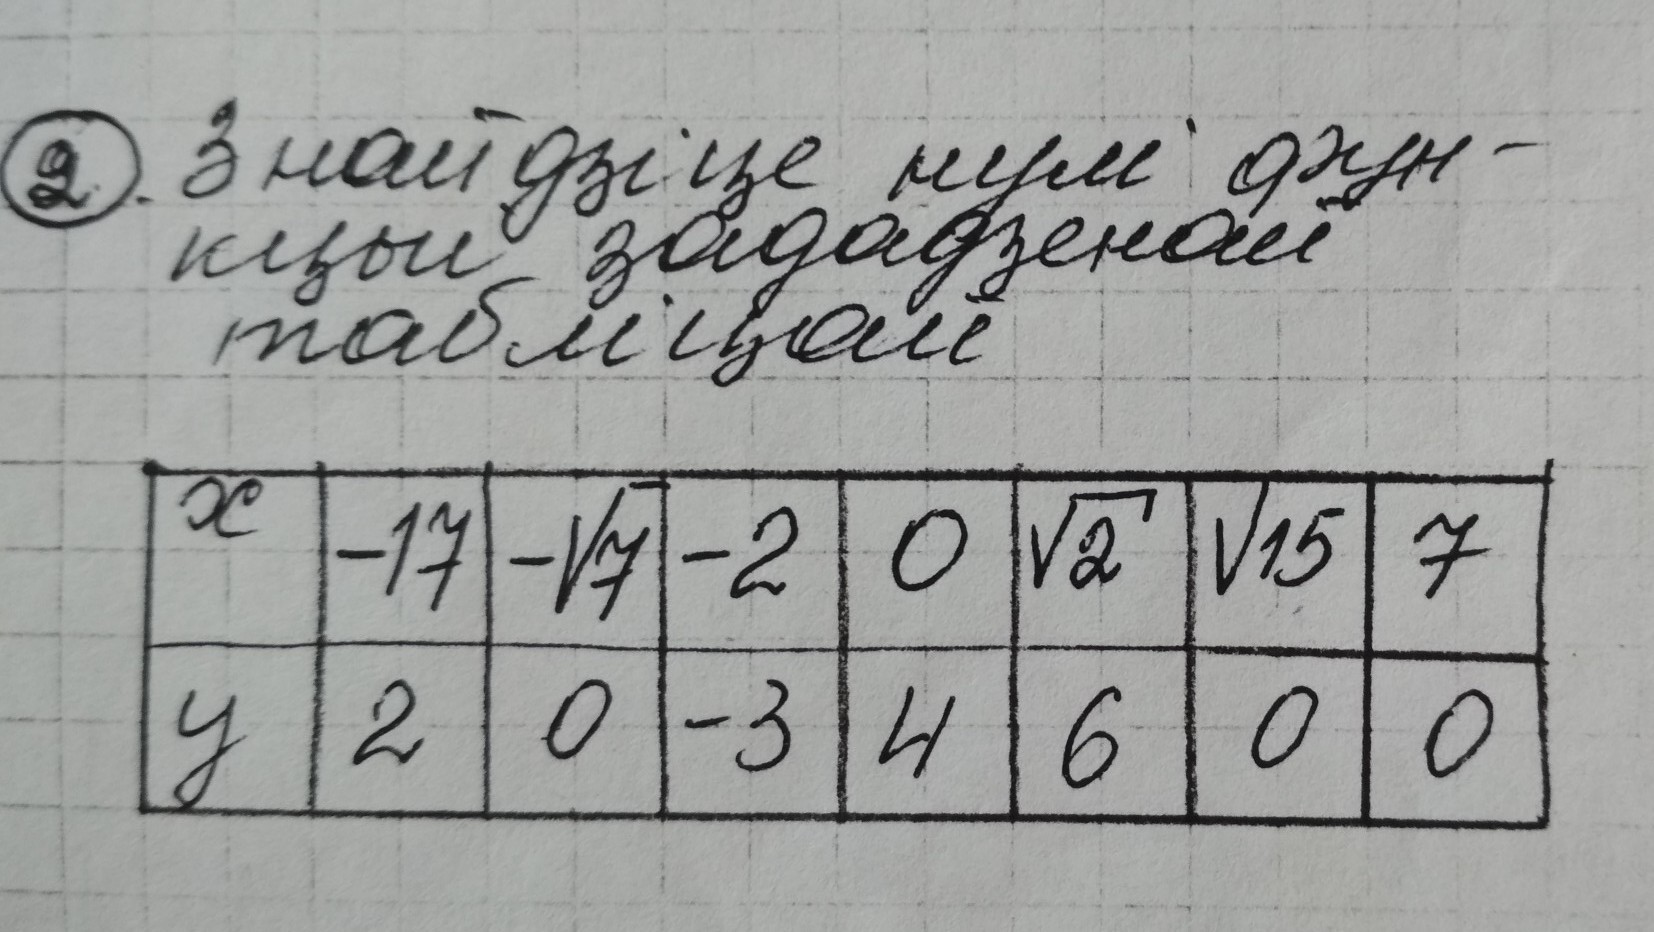 2. Знайдзіце нулі фун-
кцыі зададзенай
табліцай
x -17 -√7 -2 0 √2 √15 7
y 2 0 -3 4 6 0 0